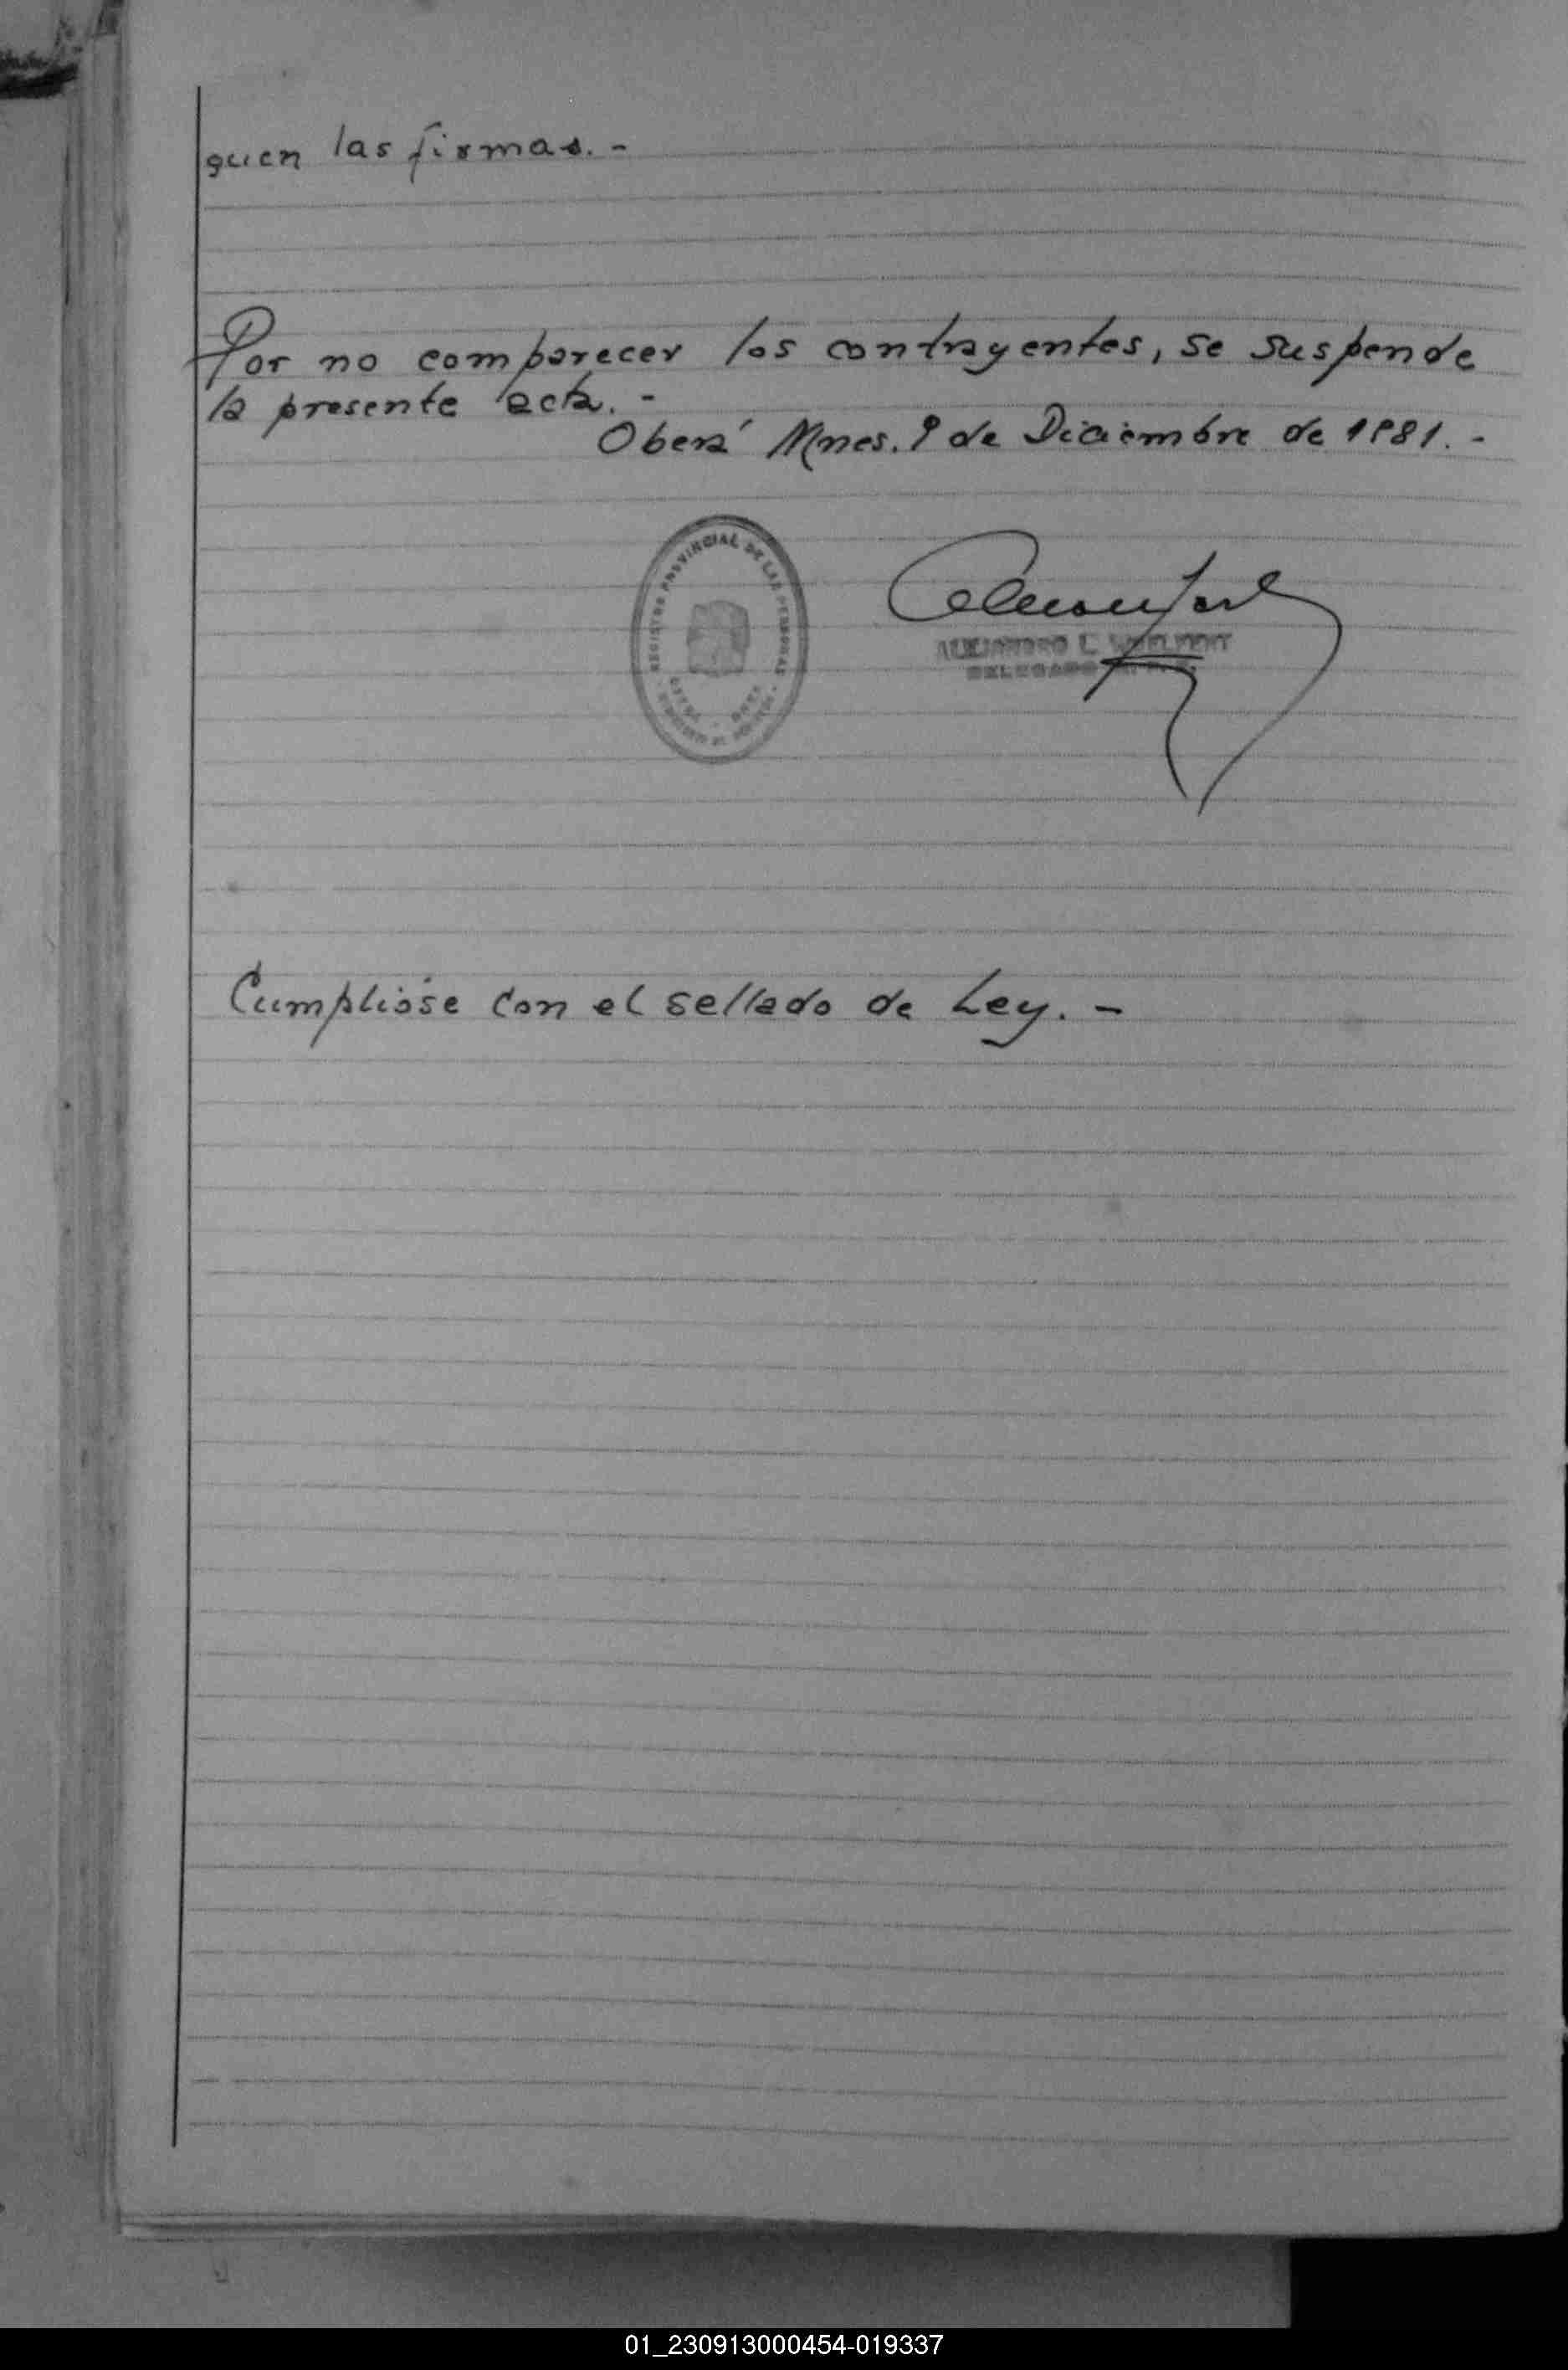 guen las firmas.-
Por no comparecer los contrayentes, se suspende
la presente acta.-
Oberá Mnes. 9 de Diciembre de 1981.-
REGISTRO PROVINCIAL DE LAS PERSONAS
ALEJANDRO L.
DELEGADO
Cumplióse con el sellado de Ley.-
01_230913000454-019337